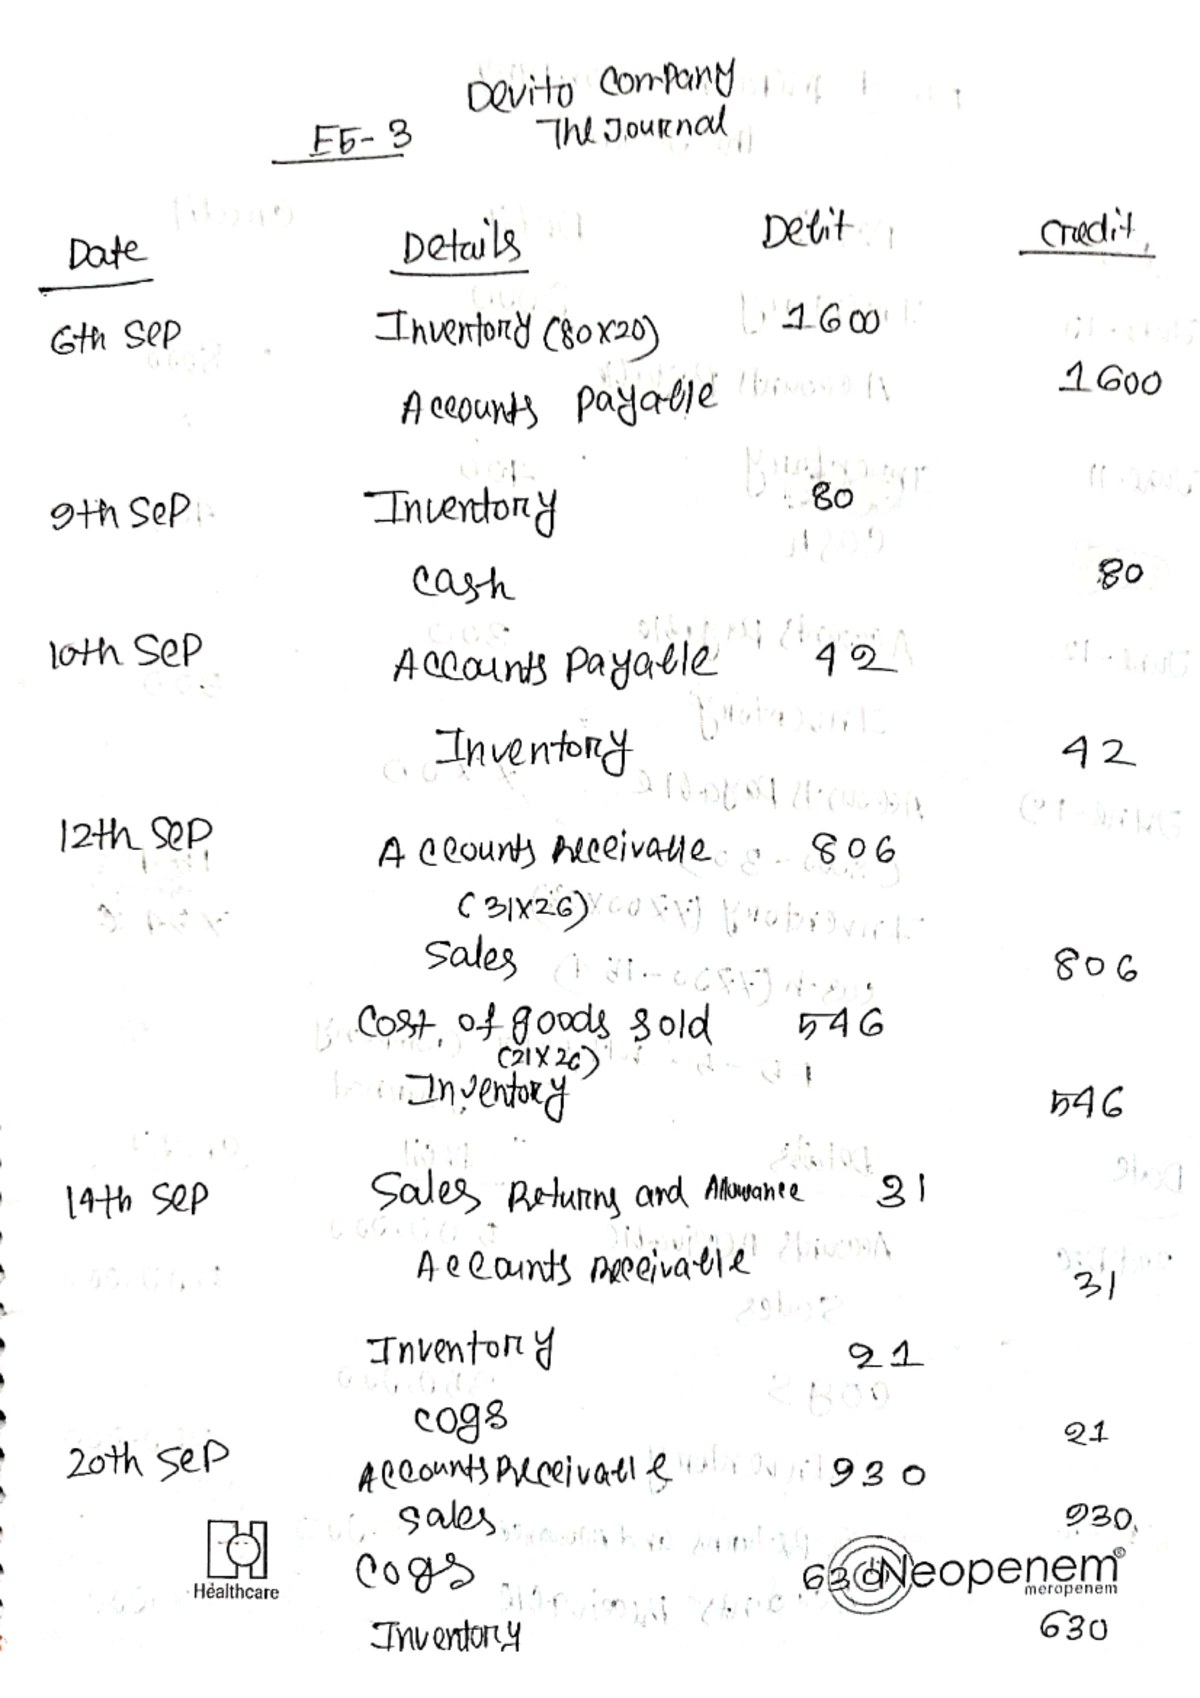 Devito Company
E5-3 The Journal
Date Details Debit Credit
6th Sep Inventory (80x20) 1600
Accounts payable 1600
9th Sep Inventory 80
cash 80
10th Sep Accounts Payable 42
Inventory 42
12th Sep Accounts Receivable 806
(31x26)
Sales 806
Cost of goods sold 546
(21x26)
Inventory 546
14th Sep Sales Returns and Allowance 31
Accounts Receivable 31
Inventory 21
Cogs 21
20th Sep Accounts Receivable 930
Sales 930
Cogs 630
Healthcare
Neopenem®
meropenem
Inventory 630